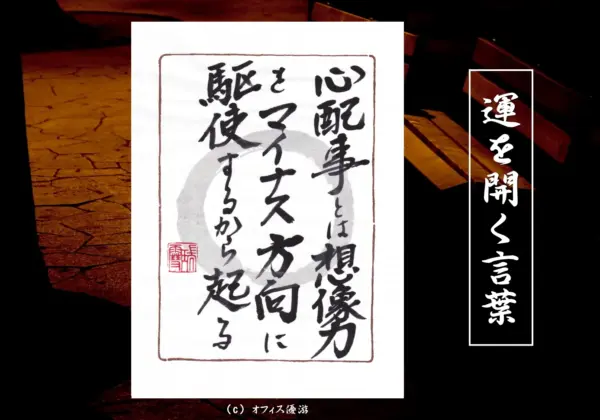 運を開く言葉
心配事とは想像力
をマイナス方向に
駆使するから起る
(C) オフィス優游